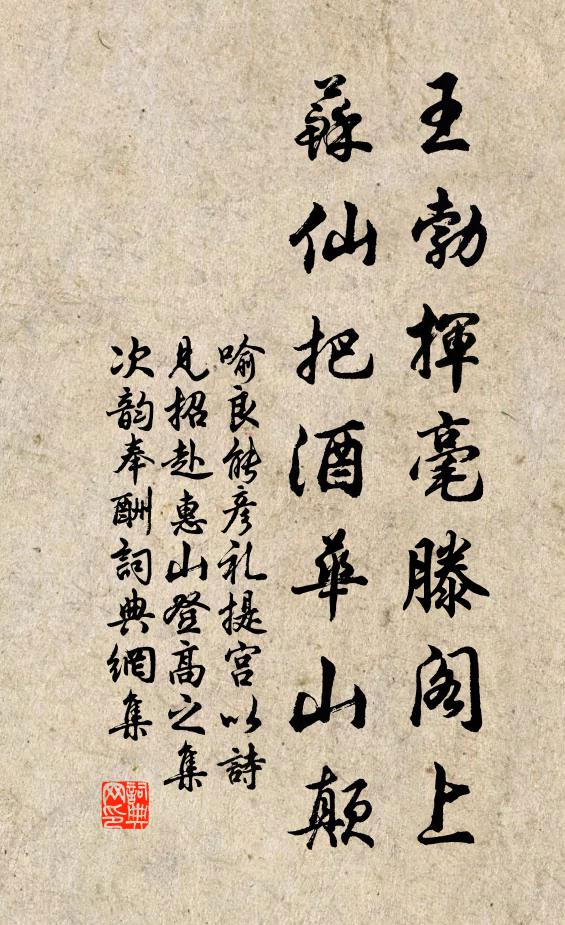 王勃揮毫滕阁上
蘇仙把酒華山顛
喻良能彦礼提宫以詩
見招赴惠山登高之集
次韵奉酬詞典網集
詞典网印